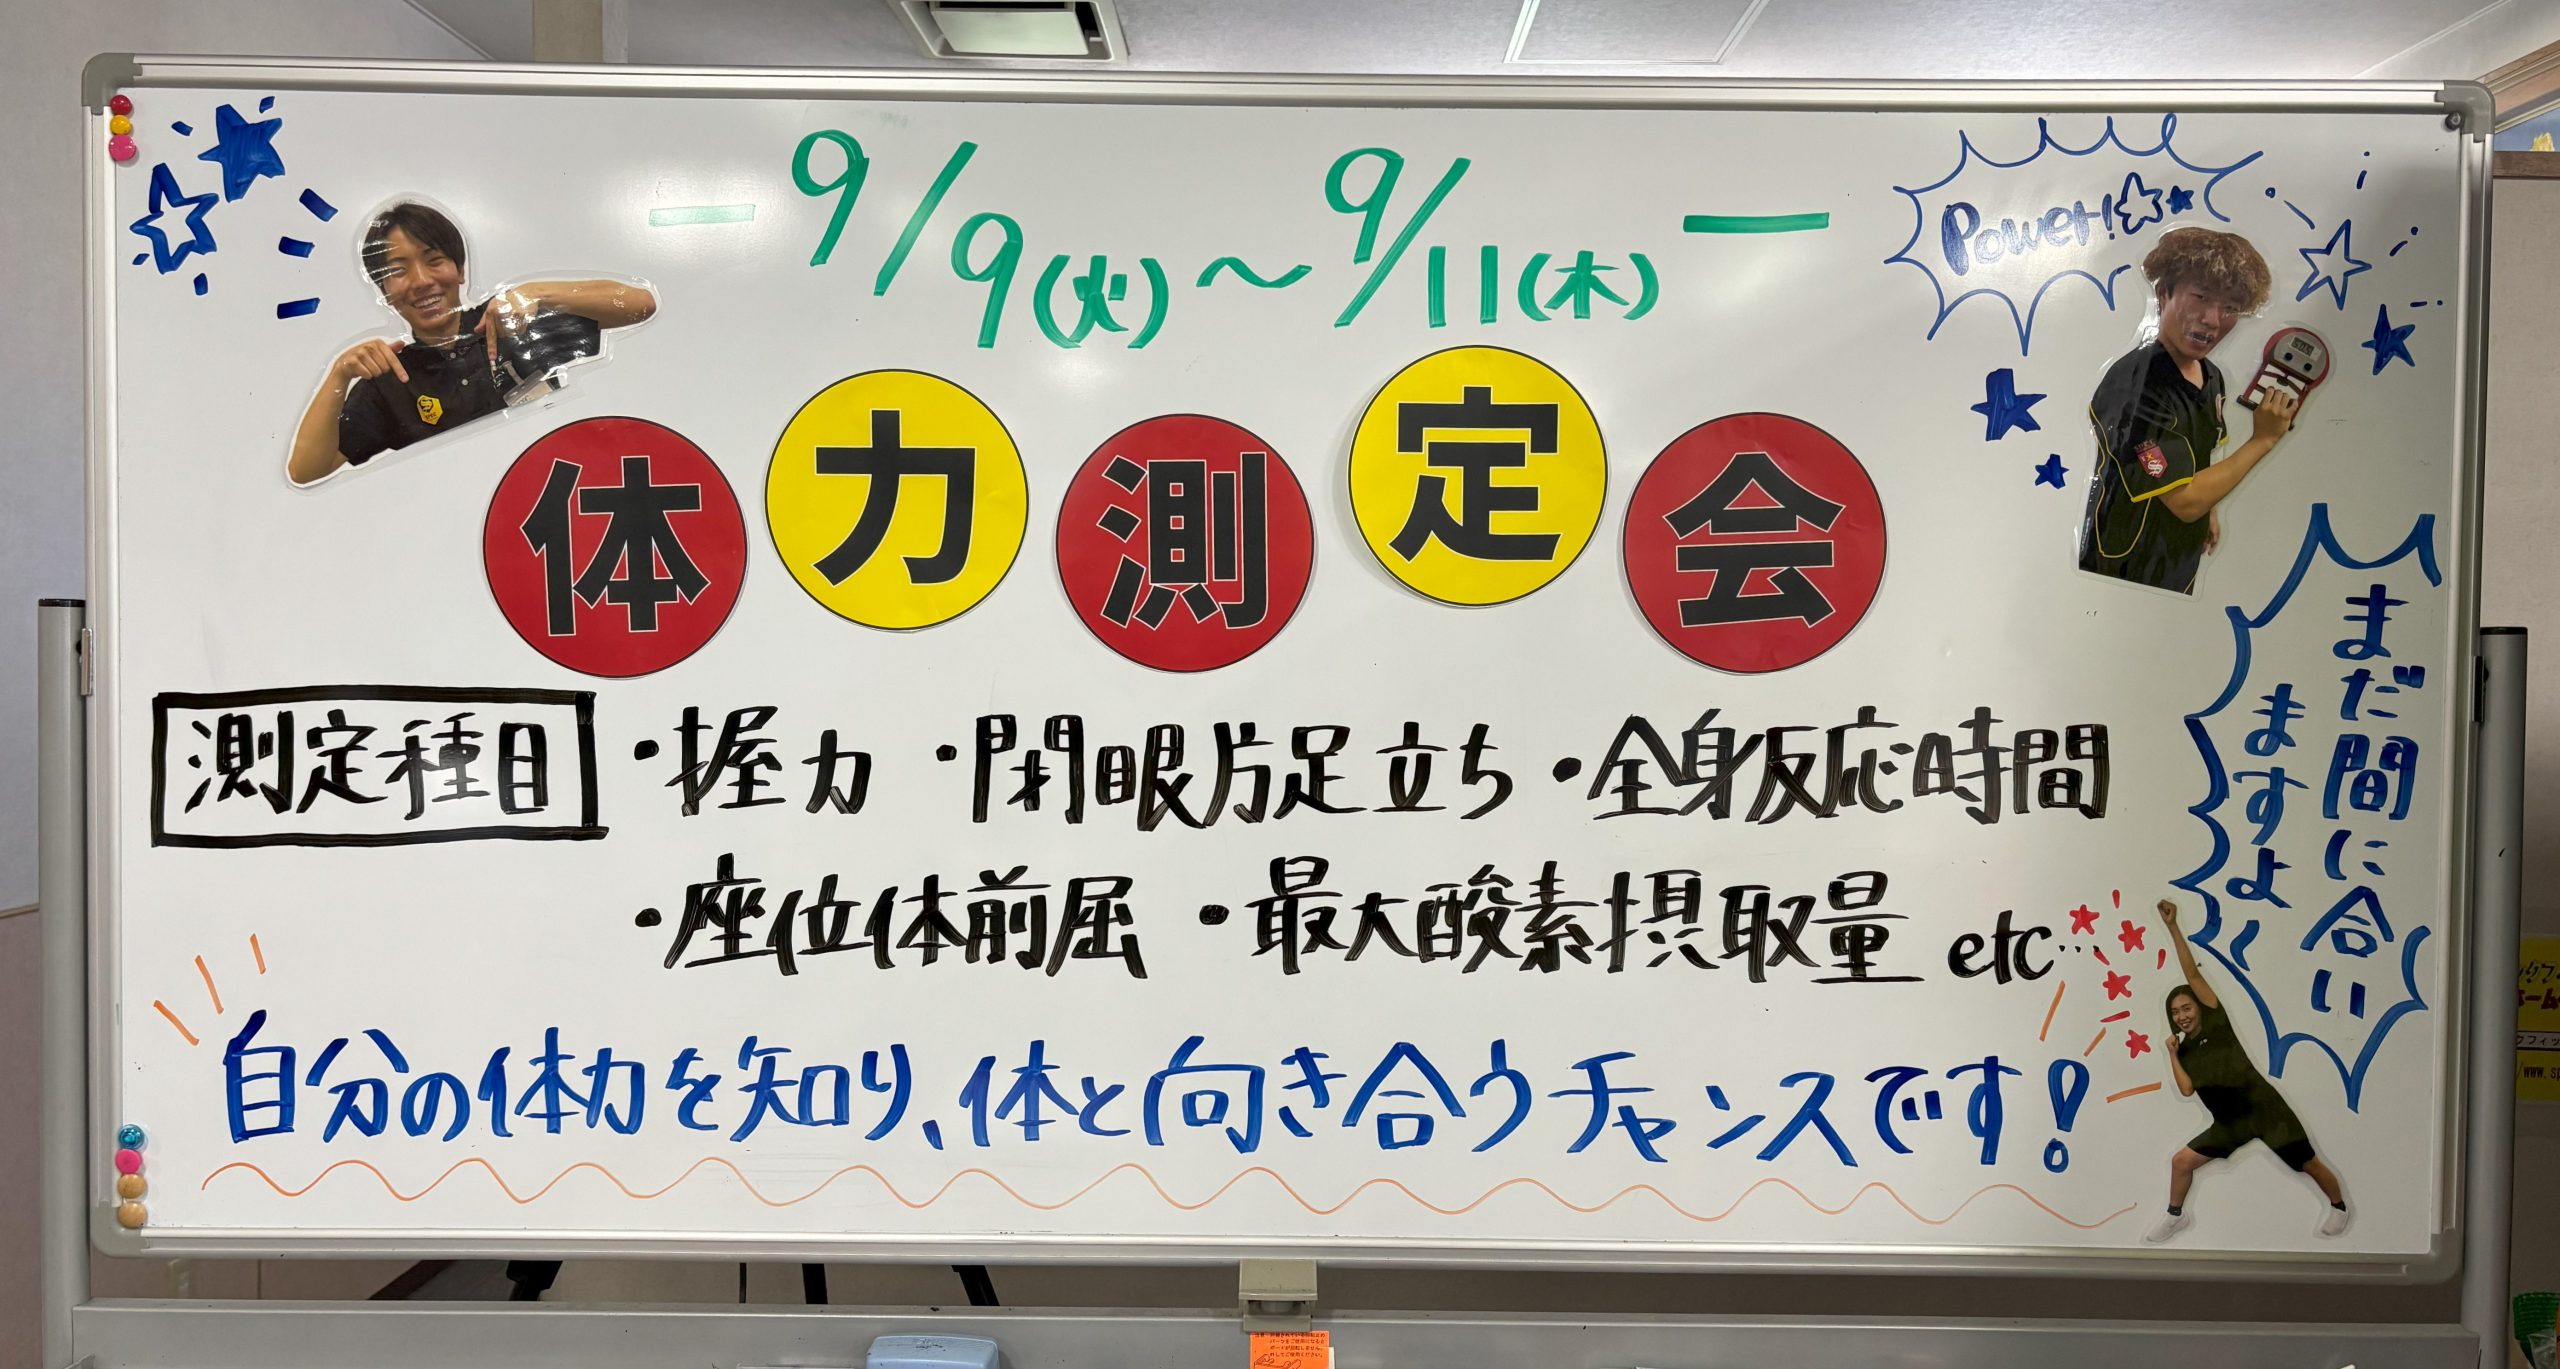 ー 9/9(火)～9/11(木) ー
Power!☆★
体力測定会
測定種目 ・握力 ・閉眼片足立ち ・全身反応時間
・座位体前屈 ・最大酸素摂取量 etc…
まだ間に合い
ますよ〜
自分の体力を知り、体と向き合うチャンスです!